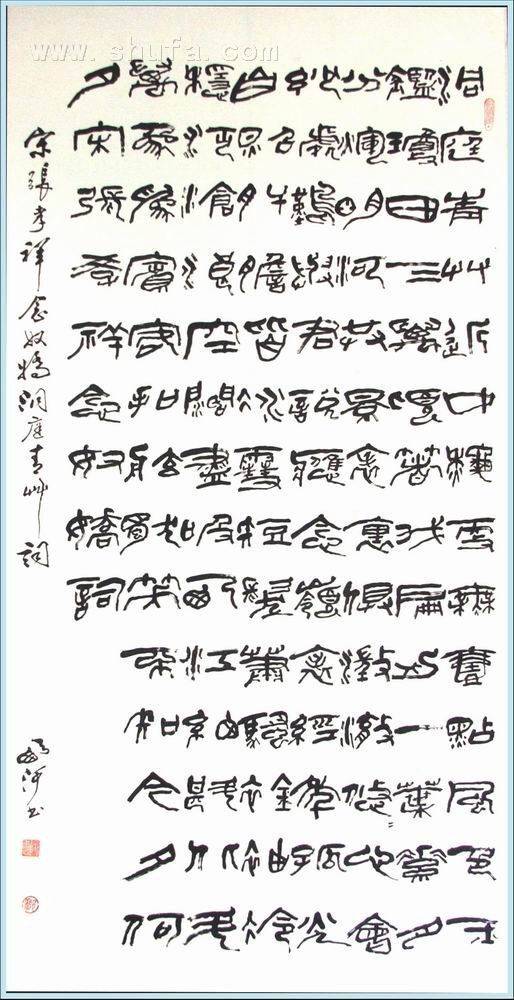 洞庭青艸近中龝更無一點風色玉
鑑瓊田三萬頃著我扁舟一葉素月
分輝明河共景表裏俱澂澈悠心會
妙處難與君說應念嶺表經年孤光
自照肝膽皆冰雪短髮蕭騷襟袖冷
穩泛滄浪空闊盡吸西江細斟北斗
萬象為賓客扣舷獨嘯不知今夕何
夕宋張孝祥念奴嬌詞
宋張孝祥念奴嬌洞庭青艸詞
www.shufa.com